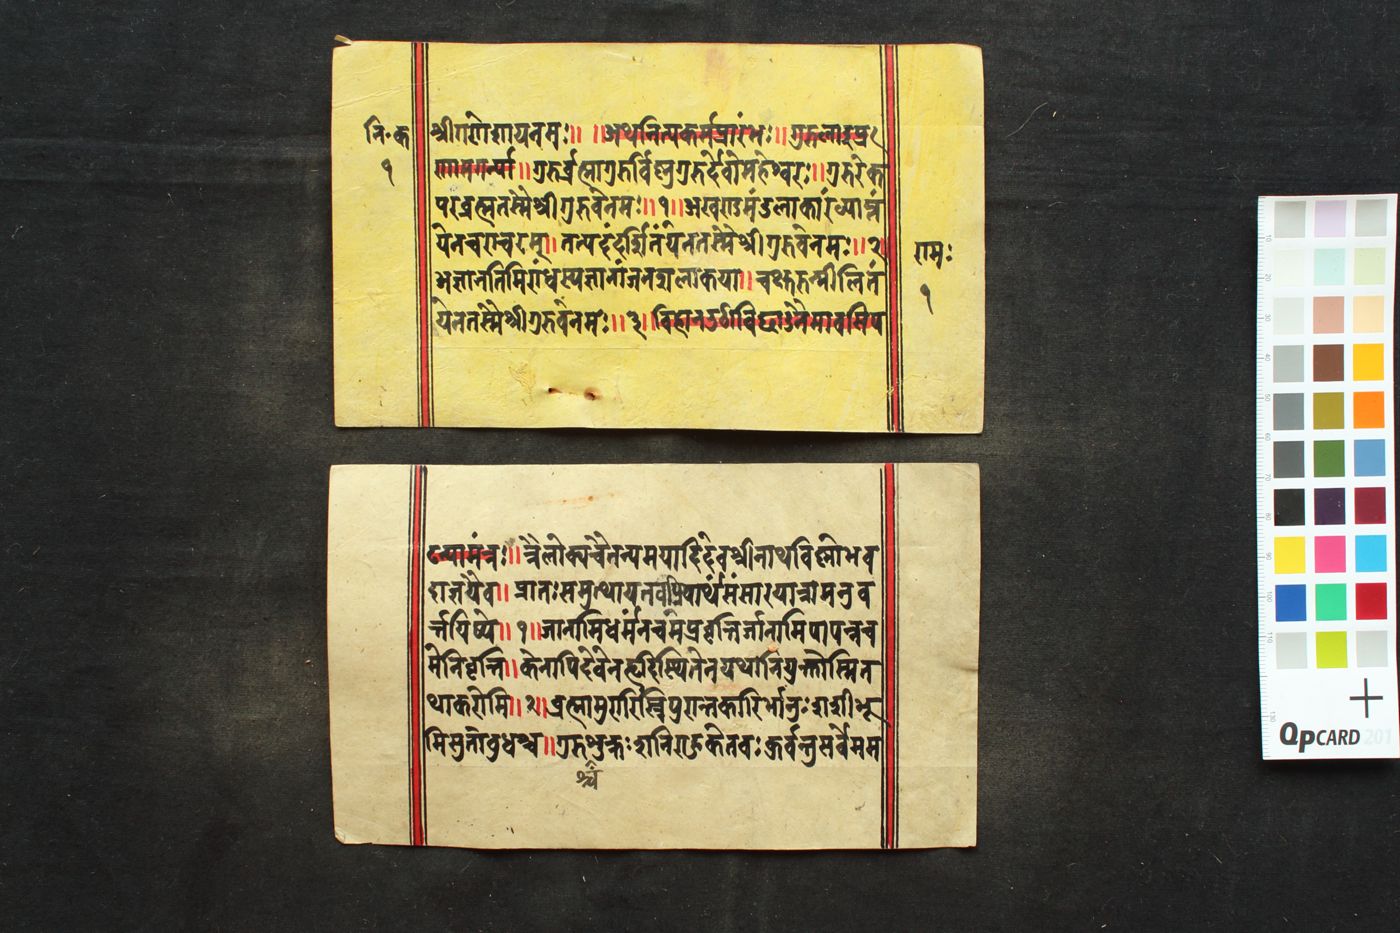 नि॰क
१
श्रीगणेशायनमः॥ ॥अथनित्यकर्मप्रारंभः॥ गुरु
॥गुरुर्ब्रह्मागुरुर्विष्णुगुरुर्देवोमहेश्वरः॥गुरुरेक
परब्रह्मतस्मैश्रीगुरुवेनमः॥१॥अखण्डमंडलाकारंव्याप्तं
येनचराचरम्॥तत्पदंदर्शितंयेनतस्मैश्रीगुरुवेनमः॥२
अज्ञानतिमिरांधस्यज्ञानांजनशलाकया॥चक्षुरुन्मीलितं
येनतस्मैश्रीगुरुवेनमः॥३॥
रामः
१
मंत्रः॥त्रैलोक्यचैतन्यमयादिदेवश्रीनाथविष्णोभव
दाज्ञयैव॥प्रातःसमुत्थायतवप्रियार्थंसंसारयात्रामनुव
र्त्तयिष्ये॥१॥जानामिधर्मंनचमेप्रवृत्तिर्जानामिपापन्नच
मेनिवृत्ति॥केनापिदेवेनहृदिस्थितेनयथानियुक्तोस्मित
थाकरोमि॥२॥ब्रह्मामुरारिस्त्रिपुरान्तकारिर्भानुःशशीभू
मिसुतोबुधश्च॥गुरुशुक्रःशनिराहुकेतवःकुर्वन्तुसर्वेमम